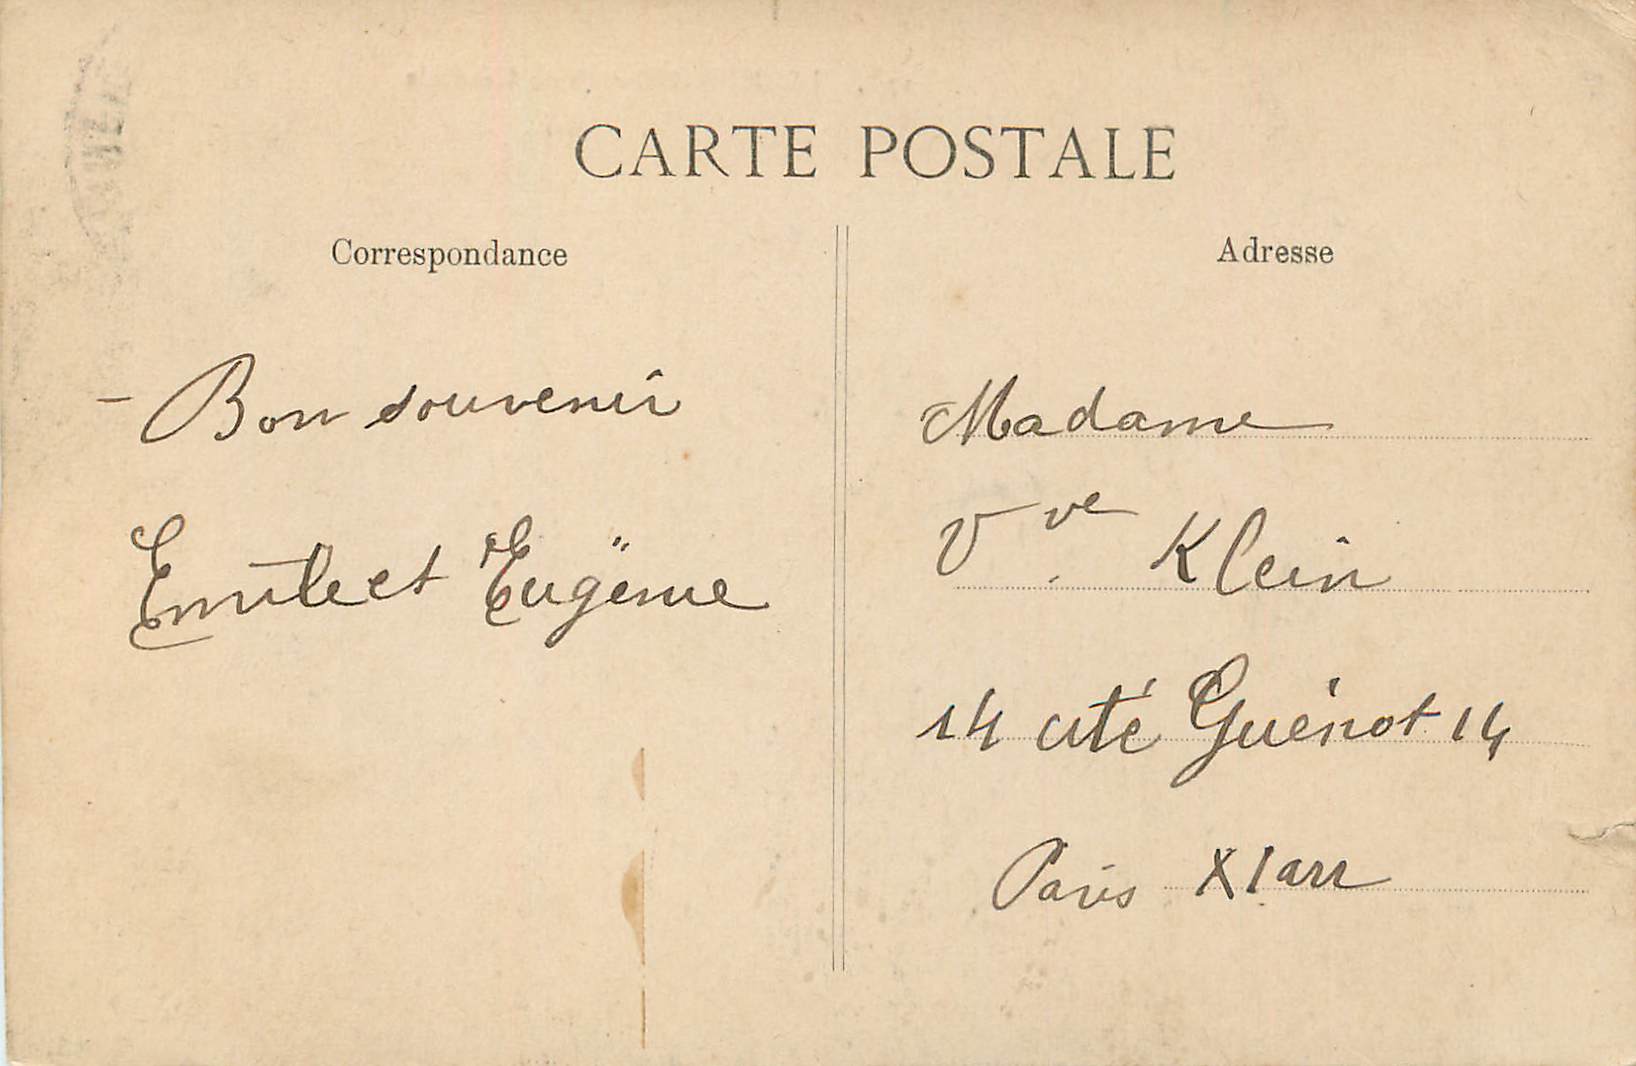 CARTE POSTALE
Correspondance
- Bon souvenir
Emile et Eugënie
Adresse
Madame
Vve Klein
14 cité Guénot 14
Paris XI arr